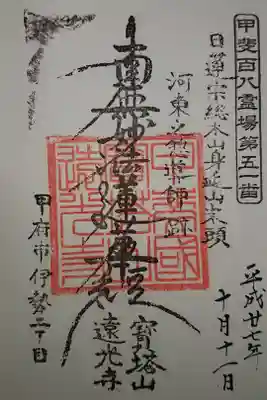 甲斐百八霊場第五一番
平成廿七年
十月十一日
日蓮宗総本山身延山末頭
河東 師跡
南無妙法蓮華経
寶塔山
遠光寺
甲府市伊勢二丁目